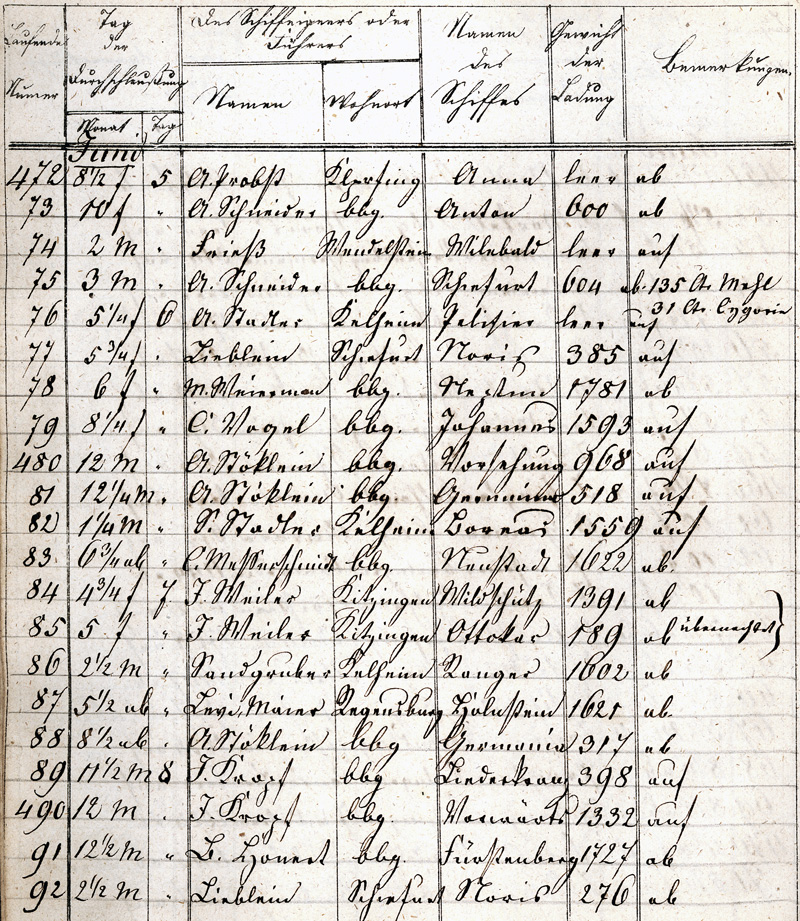 Laufende Numer
Tag der Durchschleußung
Monat. Tag
Des Schiffeigners oder Führers
Namen Wohnort
Namen des Schiffes
Gewicht der Ladung
Bemerkungen.
Juni
472 8½ f 5 A. Probst Anna leer ab
73 10 f " A. Schneider bbg. Anton 600 ab
74 2 M " Frieß Wendelstein Wilebald leer auf
75 3 M " A. Schneider bbg. 604 ab. 135 Ctr. Mehl
31 Ctr. Cygorie
76 5¼ f 6 A. Stadler Kelheim Pelisier leer auf
77 5¾ f " Lieblein Noris 385 auf
78 6 f " M. Weierman bbg. Neptun 1781 ab
79 8¼ f " C. Vogel bbg. Johannes 1593 auf
480 12 M " A. Stöklein bbg. Vorsehung 968 auf
81 12¼ M " A. Stöklein bbg. Germania 518 auf
82 1¼ M " S. Stadler Kelheim Boreas 1559 auf
83. 6¾ ab " C. Messerschmidt bbg. Neustadt 1622 ab.
84 4¾ f 7 J. Weiler Kitzingen Wildschütz 1391 ab
85 5 f " J. Weiler Kitzingen Ottokar 189 ab übernachtet
86 2½ M " Sandgruber Kelheim Ranger 1602 ab
87 5½ ab " Levi, Maier Regensburg Holnstein 1621 ab.
88 8½ ab " A Stöklein bbg Germania 317 ab
89 11½ M 8 J. Kropf bbg Liederkranz 398 auf
490 12 M " J. Kropf bbg. Vorwärts 1332 auf
91 12½ M " B. Hönert bbg. Fürstenberg 1727 ab
92 2½ M " Lieblein Noris 276 ab